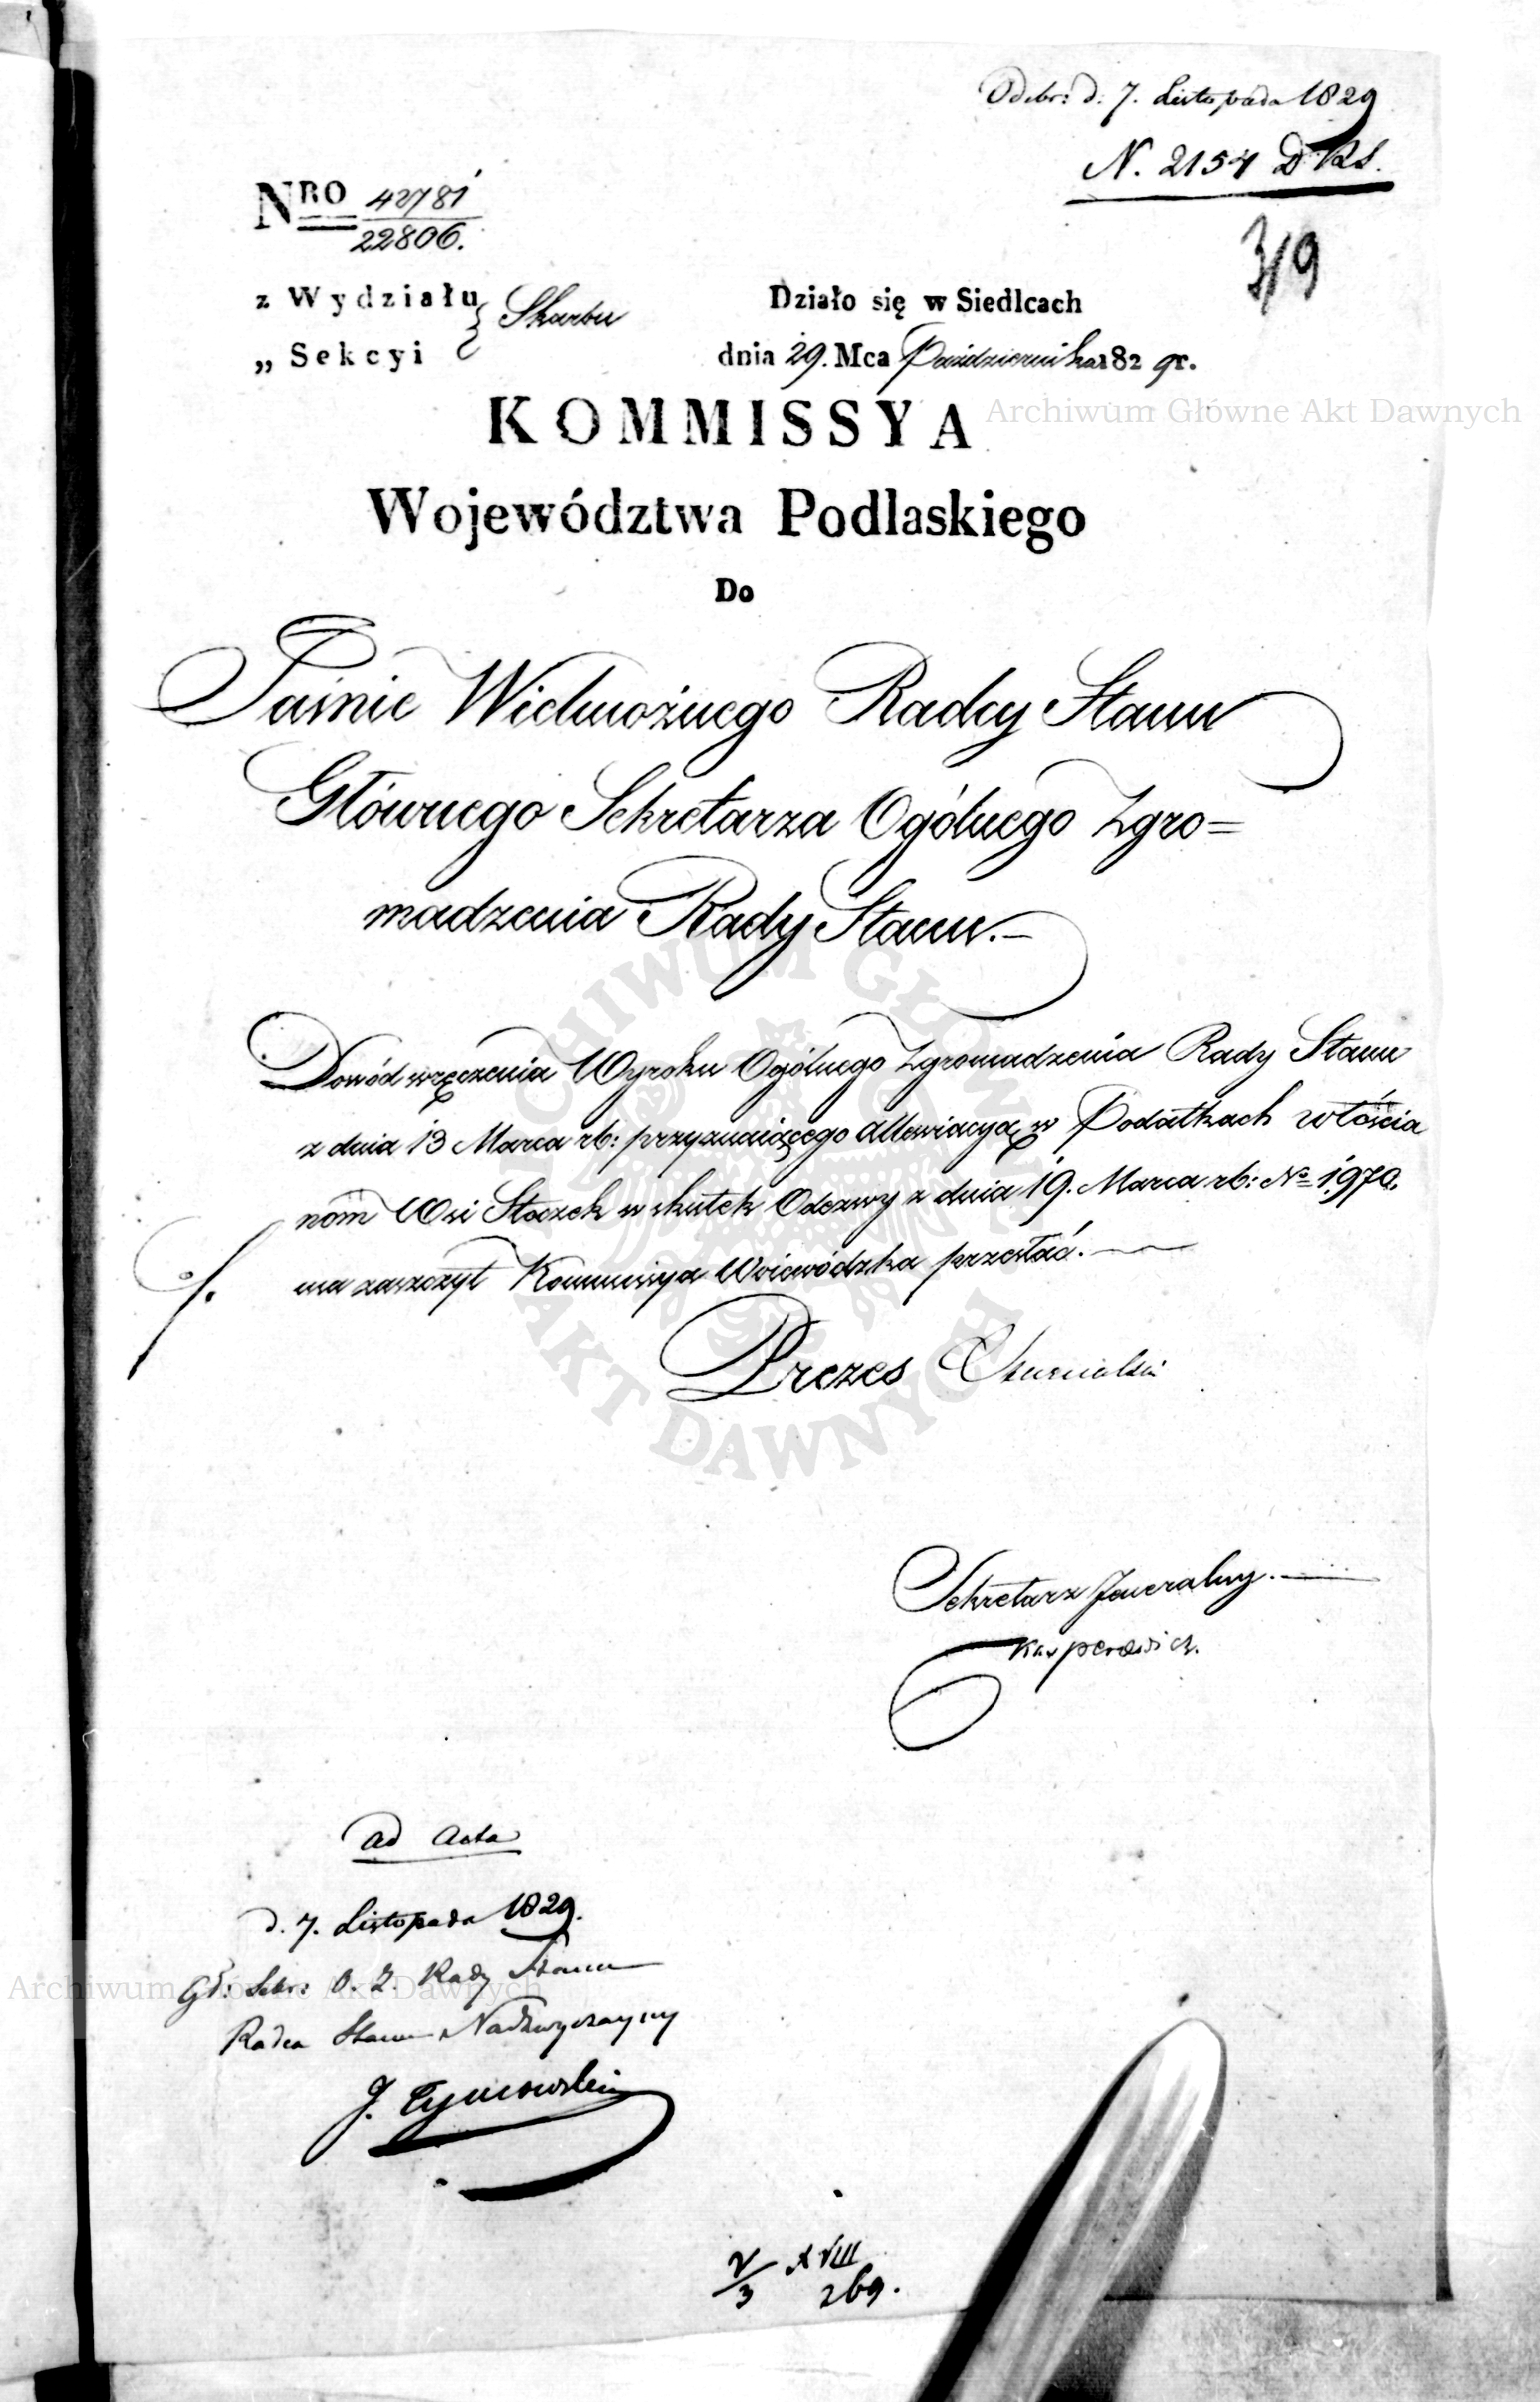 Odebr: d: 7. Listopada 1829
N. 2154 D.RS.
319
NRO 42781
22806.
z Wydziału
Skarbu
„ Sekcyi
Działo się w Siedlcach
dnia 29. Mca Października 1829 r.
KOMMISSYA
Województwa Podlaskiego
Do
Jaśnie Wielmożnego Radcy Stanu
Głównego Sekretarza Ogólnego Zgro=
madzenia Rady Stanu.—
Dowód wręczenia Wyroku Ogólnego Zgromadzenia Rady Stanu
z dnia 13 Marca rb: przyznaiącego allewiacyą w Podatkach włościa
nom Wsi Stoczek w skutek Odezwy z dnia 19. Marca rb: No 1970.
ma zaszczyt Kommissya Woiewódzka przesłać.—
Prezes
Sekretarz Jeneralny.—
Kasperowicz.
ad Acta
d. 7. Listopada 1829.
Gł: Sekr: O. Z. Rady Stanu
Radca Stanu Nadzwyczayny
J. Tymowski
V/3 XVIII
269.
Archiwum Główne Akt Dawnych
ARCHIWUM GŁÓWNE AKT DAWNYCH
Archiwum Główne Akt Dawnych